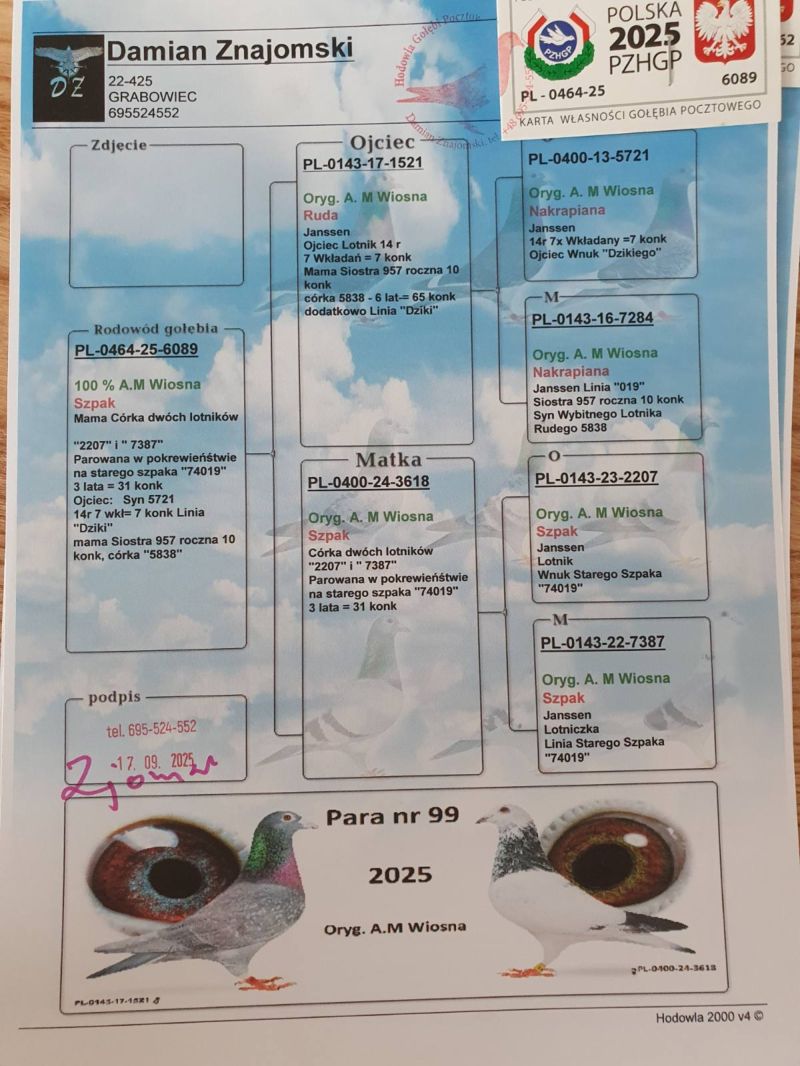 Damian Znajomski
DZ
22-425
GRABOWIEC
695524552
Hodowla Gołębi Pocztow
Damian Znajomski, tel.
POLSKA
2025
PZHGP
PZHGP
6089
PL - 0464-25
KARTA WŁASNOŚCI GOŁĘBIA POCZTOWEGO
Zdjęcie
Rodowód gołębia
PL-0464-25-6089
100 % A.M Wiosna
Szpak
Mama Córka dwóch lotników
"2207" i " 7387"
Parowana w pokrewieństwie
na starego szpaka "74019"
3 lata = 31 konk
Ojciec: Syn 5721
14r 7 wkł= 7 konk Linia
"Dziki"
mama Siostra 957 roczna 10
konk, córka "5838"
podpis
tel. 695-524-552
17. 09. 2025
Ojciec
PL-0143-17-1521
Oryg. A. M Wiosna
Ruda
Janssen
Ojciec Lotnik 14 r
7 Wkładań = 7 konk
Mama Siostra 957 roczna 10
konk
córka 5838 - 6 lat-= 65 konk
dodatkowo Linia "Dziki"
Matka
PL-0400-24-3618
Oryg. A. M Wiosna
Szpak
Córka dwóch lotników
"2207" i " 7387"
Parowana w pokrewieństwie
na starego szpaka "74019"
3 lata = 31 konk
PL-0400-13-5721
Oryg. A. M Wiosna
Nakrapiana
Janssen
14r 7x Wkładany =7 konk
Ojciec Wnuk "Dzikiego"
M
PL-0143-16-7284
Oryg. A. M Wiosna
Nakrapiana
Janssen Linia "019"
Siostra 957 roczna 10 konk
Syn Wybitnego Lotnika
Rudego 5838
O
PL-0143-23-2207
Oryg. A. M Wiosna
Szpak
Janssen
Lotnik
Wnuk Starego Szpaka
"74019"
M
PL-0143-22-7387
Oryg. A. M Wiosna
Szpak
Janssen
Lotniczka
Linia Starego Szpaka
"74019"
Para nr 99
2025
Oryg. A.M Wiosna
PL-0143-17-1521
PL-0400-24-3618
Hodowla 2000 v4 ©